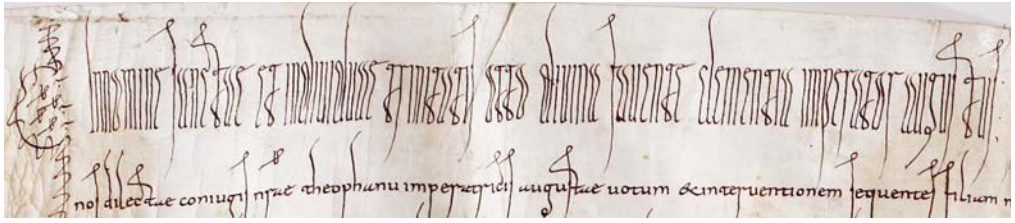 In nomine sanctae et individuae trinitatis otto divina favente clementia imperator augustus.
nos dilectae coniugis nrae theophanu imperatricis augustae votum & interventionem sequentes filium n